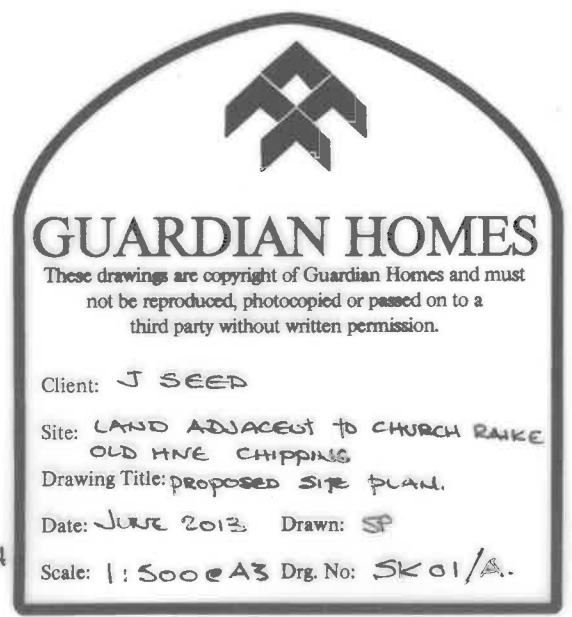 GUARDIAN HOMES
These drawings are copyright of Guardian Homes and must
not be reproduced, photocopied or passed on to a
third party without written permission.
Client: J SEED
Site: LAND ADJACENT TO CHURCH RAIKE
OLD HIVE CHIPPING
Drawing Title: PROPOSED SITE PLAN.
Date: JUNE 2013 Drawn: SP
Scale: 1:500 @ A3 Drg. No: SK01/A.